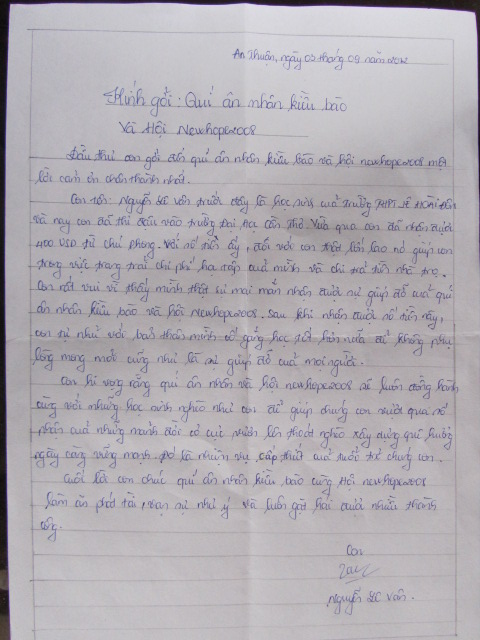 An Thuận, ngày 03 tháng 09 năm 2012
Kính gởi: Quí ân nhân kiều bào
Và Hội Newhope2008
Đầu thư con gởi đến quí ân nhân kiều bào và hội newhope2008 một
lời cảm ơn chân thành nhất.
Con tên: Nguyễn Văn trước đây là học sinh của trường THPT Lê Hoài Đôn
và nay con đã thi đậu vào trường Đại học Cần Thơ. Vừa qua con đã nhận được
400 USD từ chú phong. Với số tiền ấy, đối với con thật lớn lao nó giúp con
trong việc trang trải chi phí học tập của mình và chi trả tiền nhà trọ.
Con rất vui vì thấy mình thật sự may mắn nhận được sự giúp đỡ của quí
ân nhân kiều bào và hội Newhope2008. Sau khi nhận được số tiền này,
con tự nhủ với bản thân mình cố gắng học tốt hơn nữa để không phụ
lòng mong mỏi cũng như là sự giúp đỡ của mọi người.
Con hi vọng rằng quí ân nhân và hội newhope2008 sẽ luôn đồng hành
cùng với những học sinh nghèo như con để giúp chúng con vượt qua số
phận của những mảnh đời cơ cực vươn lên thoát nghèo xây dựng quê hương
ngày càng vững mạnh đó là nhiệm vụ cấp thiết của tuổi trẻ chúng con.
Cuối lời con chúc quí ân nhân kiều bào cùng Hội newhope2008
làm ăn phát tài, vạn sự như ý và luôn gặt hái được nhiều thành
công.
Con
Nguyễn Văn.